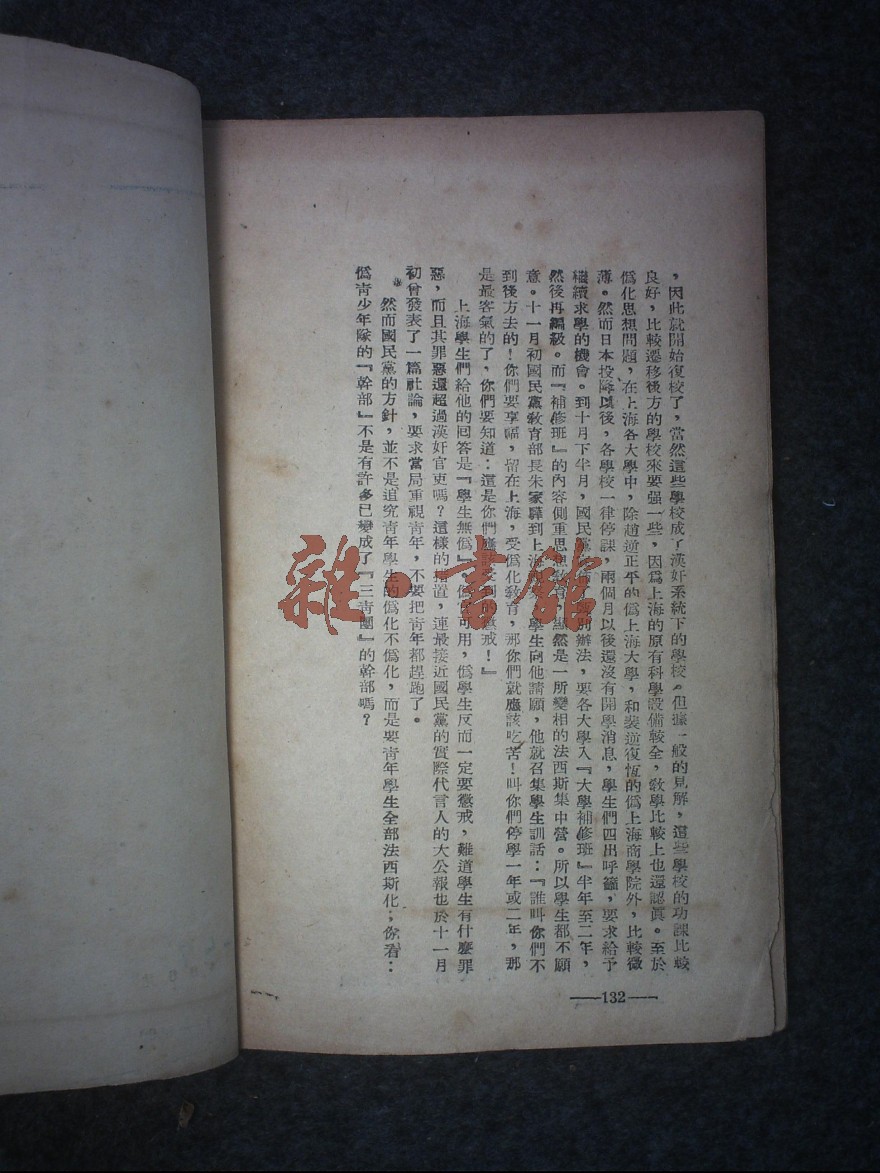 ，因此就開始復校了，當然這些學校成了漢奸系統下的學校。但據一般的見解，這些學校的功課比較
良好，比較遷移後方的學校來要强一些，因爲上海的原有科學設備較全，敎學比較上也還認眞。至於
僞化思想問題，在上海各大學中，除趙逆正平的僞上海大學，和裝逆復恆的僞上海商學院外，比較微
薄。然而日本投降以後，各學校一律停課，兩個月以後還沒有開學消息，學生們四出呼籲，要求給予
繼續求學的機會。到十月下半月，國民黨 別辦法，要各大學入『大學補修班』半年至二年，
然後再編級。而『補修班』的內容側重思想敎育，顯然是一所變相的法西斯集中營。所以學生都不願
意。十一月初國民黨敎育部長朱家驊到上海 學生向他請願，他就召集學生訓話：『誰叫你們不
到後方去的！你們要享福，留在上海，受僞化敎育，那你們就應該吃苦！叫你們停學一年或二年，那
是最客氣的了，你們要知道：這是你們應該受到的懲戒！』
上海學生們給他的回答是『學生無僞』 可用，僞學生反而一定要懲戒，難道學生有什麼罪
惡，而且其罪惡還超過漢奸官吏嗎？這樣的措置，連最接近國民黨的實際代言人的大公報也於十一月
初曾發表了一篇社論，要求當局重視靑年，不要把靑年都趕跑了。
然而國民黨的方針，並不是追究靑年學生的僞化不僞化，而是要靑年學生全部法西斯化；你看：
僞靑少年隊的『幹部』不是有許多已變成了『三靑團』的幹部嗎？
—132—
雜·書館